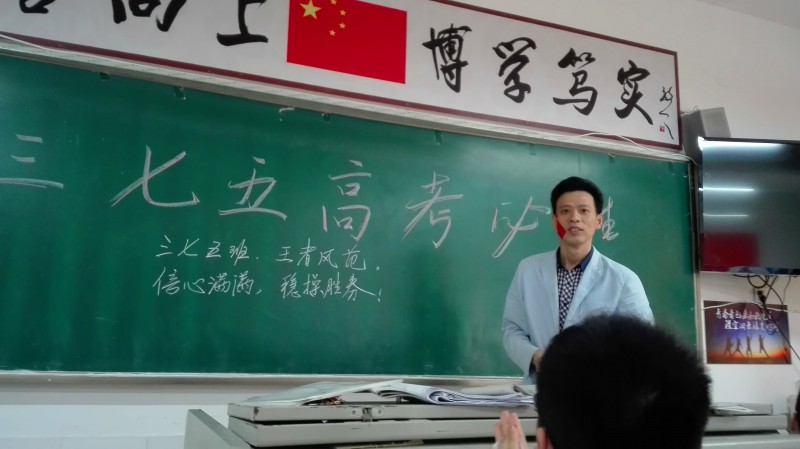 向上 博学笃实
三七五高考必胜
三七五班、王者风范，
信心满满，稳操胜券！